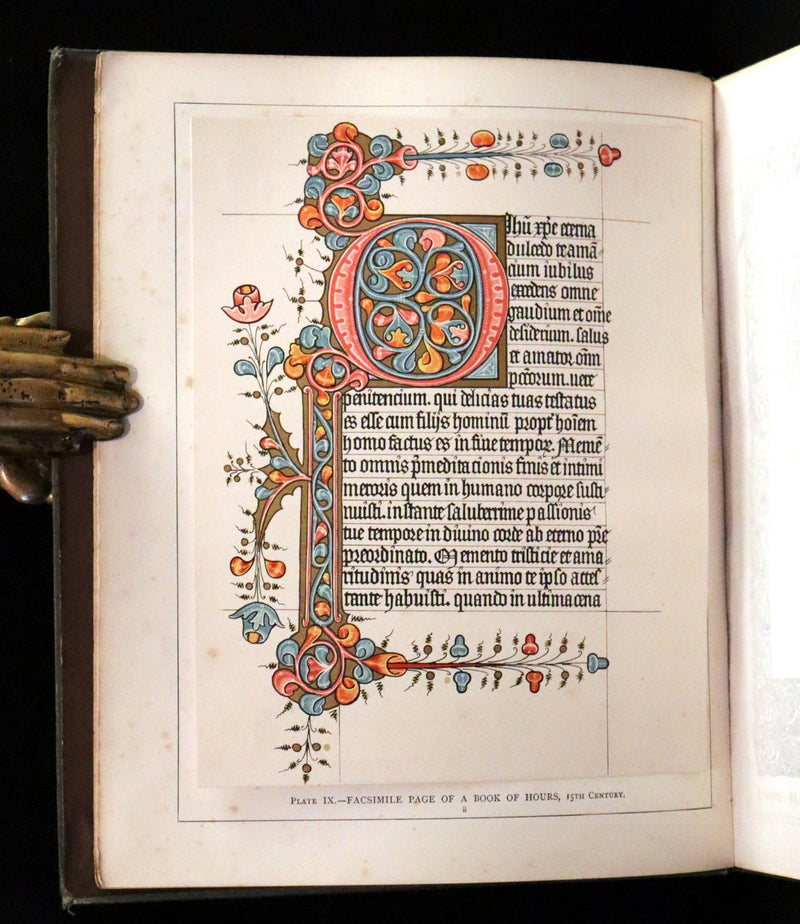 O Jhū xp̄e eterna
dulcedo te amā
cium iubilus
excedens omne
gaudium et om̄e
desiderium. salus
et amator om̄
pctōrum. uere
penitencium. qui delicias tuas testatus
es esse cum filijs hominū propt' hoīem
homo factus es in fine tempor. Memē
to omnis p̄meditacionis finis et intimi
meroris quem in humano corpore susti
nuisti. instante saluberrime passionis
tue tempore in diuino corde ab eterno pr̄e
preordinato. Memento tristicie et ama
ritudinis quas in animo te ipso attes
tante habuisti. quando in ultima cena
Plate IX.—FACSIMILE PAGE OF A BOOK OF HOURS, 15th Century.